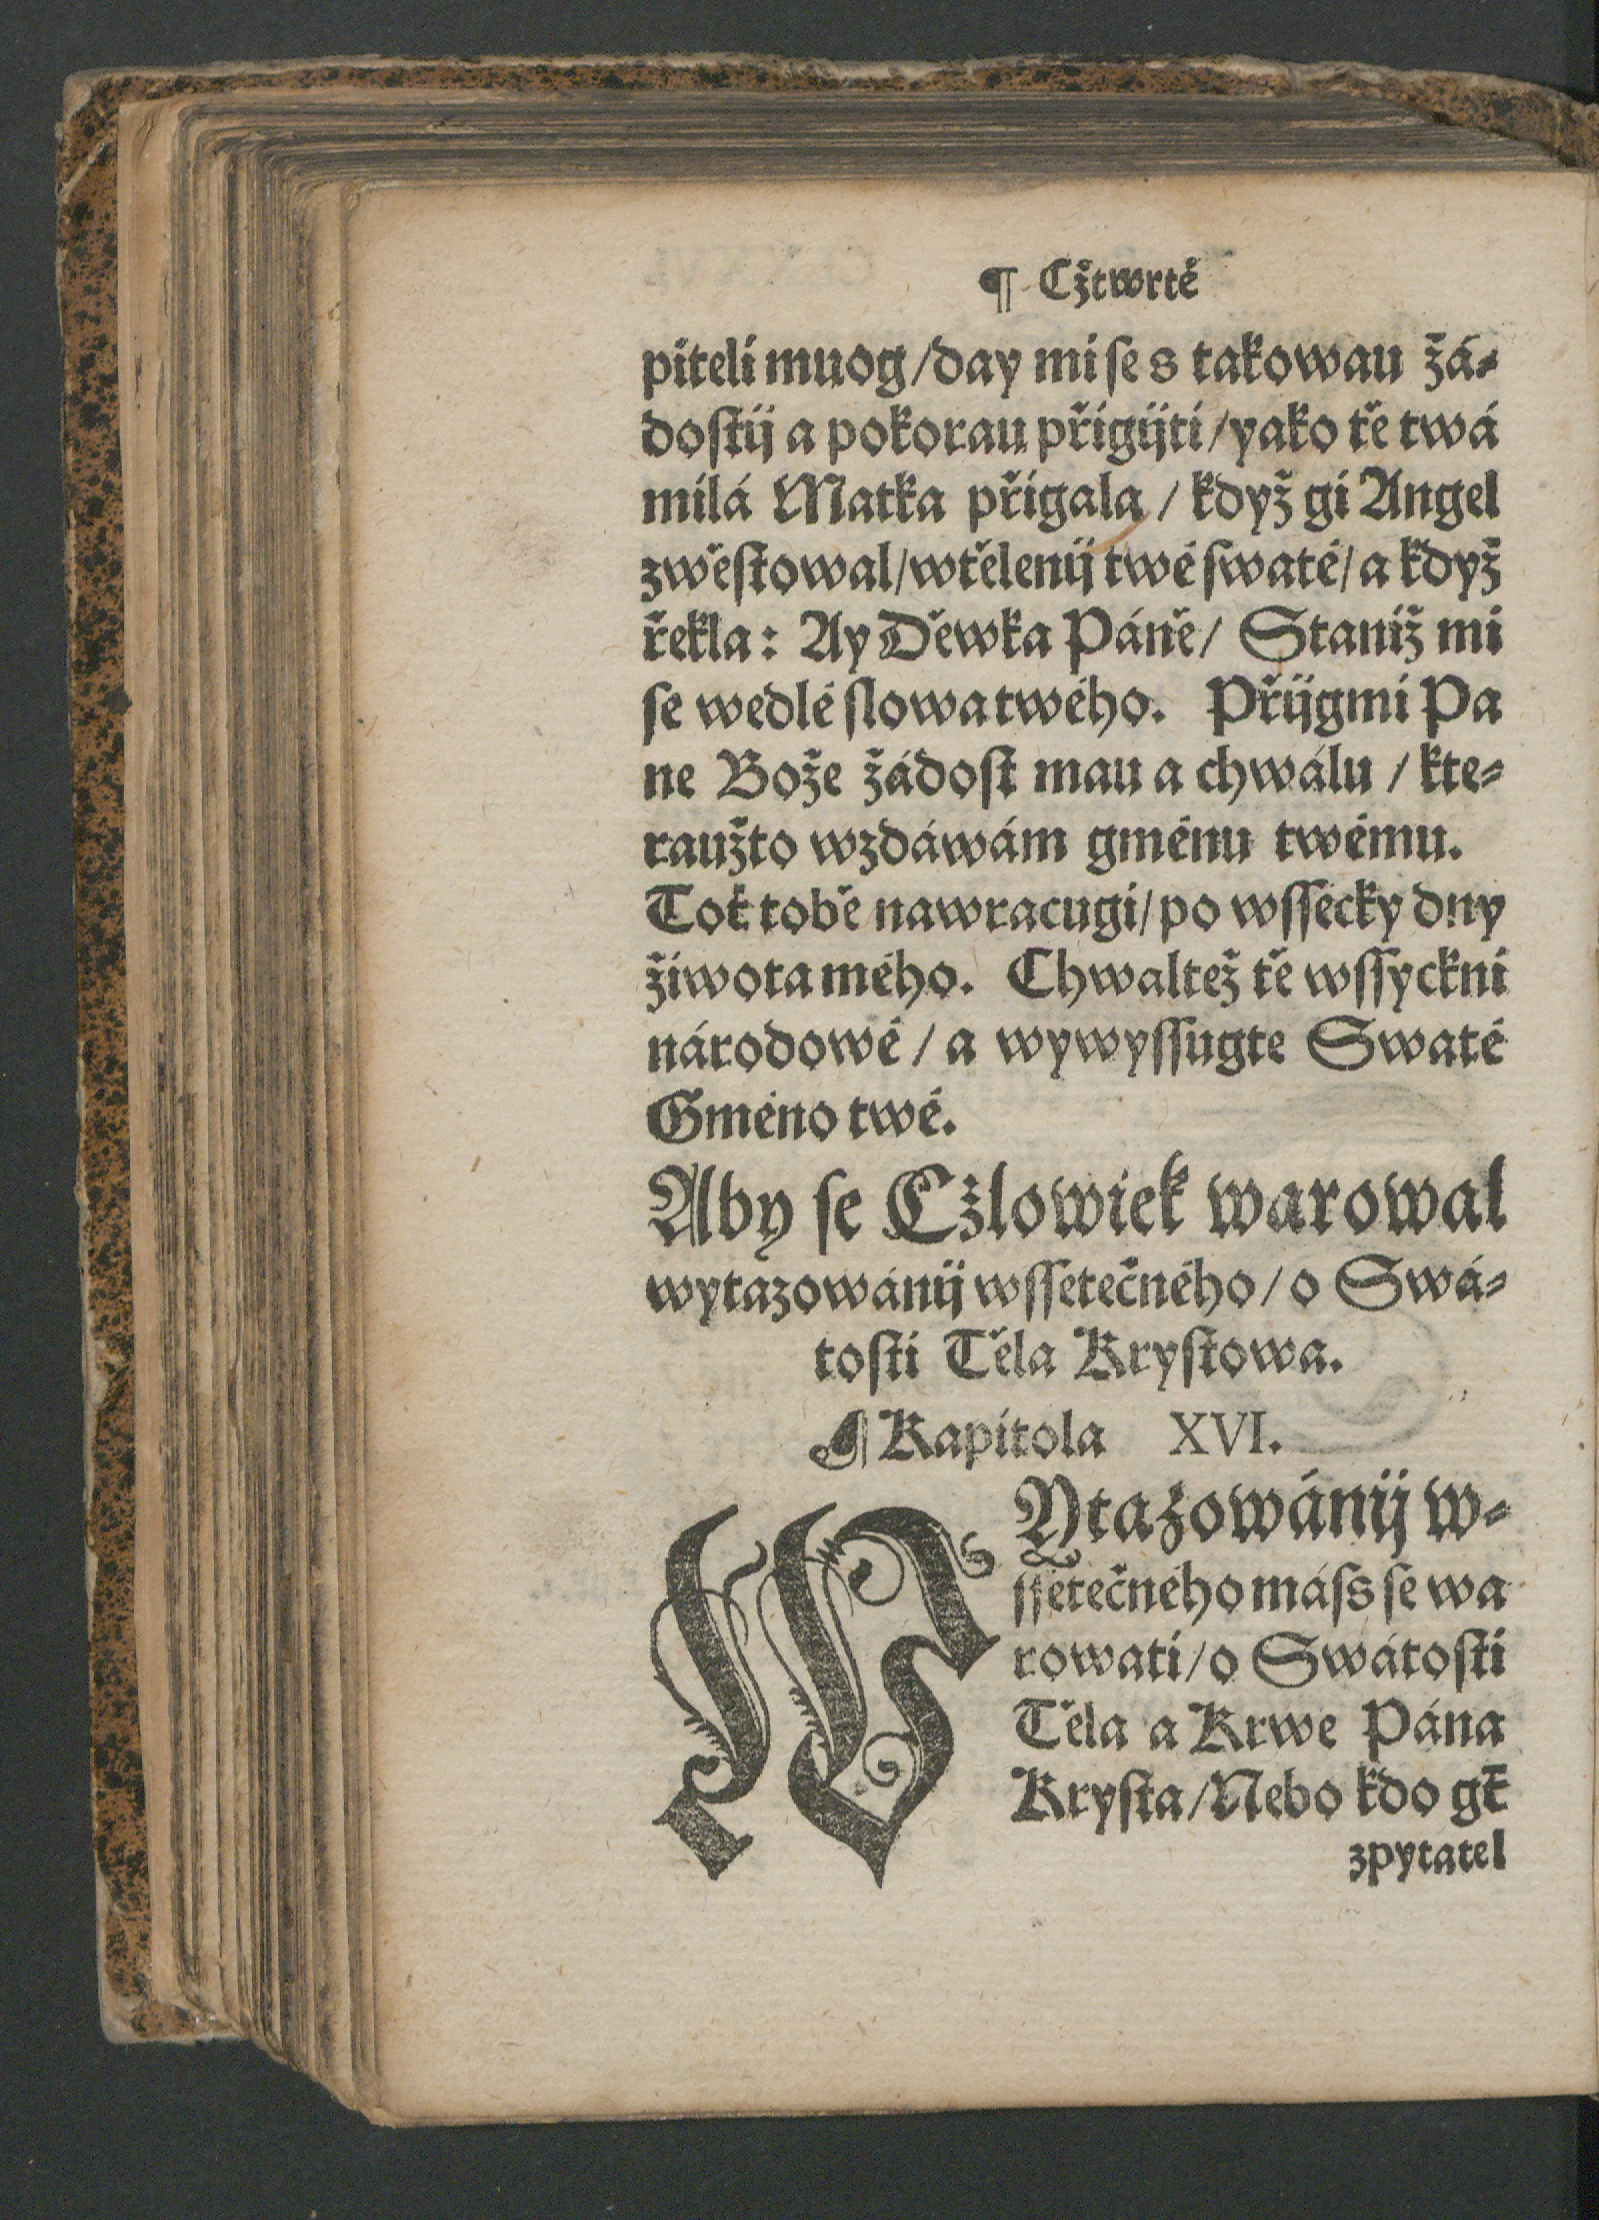 ¶ Cžtwrté
piteli muog/day mi ſe s takowau žá⸗
doſtij a pokorau přigijti/yako tě twá
milá Matka přigala/když gi Angel
zwěſtowal/wtělenij twé ſwaté/a když
řekla: Ay Děwka Páně/ Staniž mi
ſe wedlé ſlowa twého. Přijgmi Pa
ne Bože žádoſt mau a chwálu/kte⸗
raužto wzdáwám gménu twému.
Toť tobě nawracugi/po wſſecky dny
žiwota mého. Chwaltež tě wſſyckni
národowé/a wywyſſugte Swaté
Gméno twé.
Aby ſe Cžlowiek warowal
wytazowánij wſſetečného/o Swá⸗
toſti Těla Kryſtowa.
¶ Kapitola XVI.
WYtazowánij w⸗
ſſetečného máſs ſe wa
rowati/o Swátoſti
Těla a Krwe Pána
Kryſta/Nebo kdo gť
zpytatel